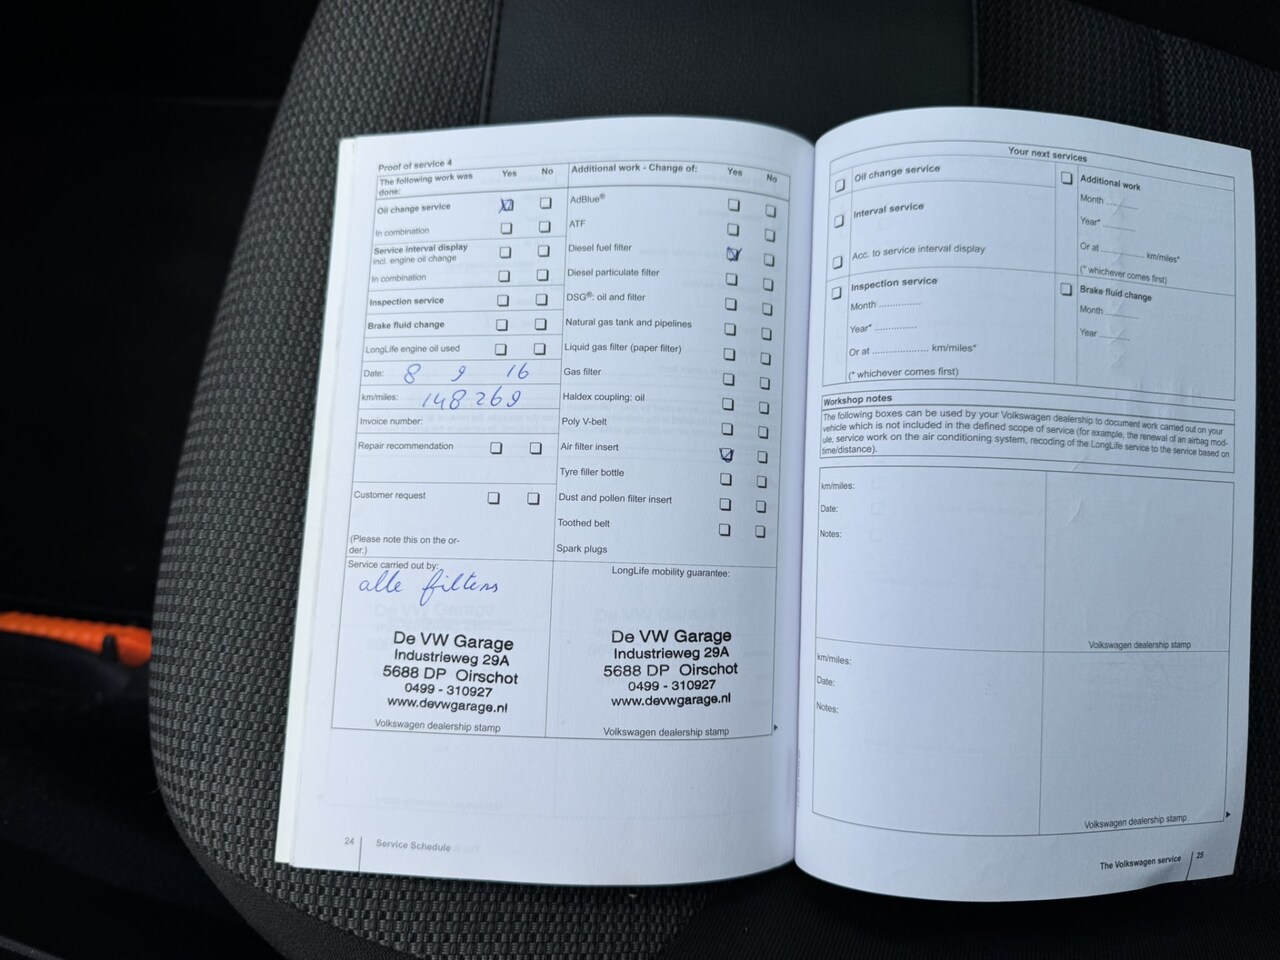 Proof of service 4
The following work was done: Yes No
Oil change service
In combination
Service interval display
incl. engine oil change
In combination
Inspection service
Brake fluid change
LongLife engine oil used
Date: 8 9 16
km/miles: 148269
Invoice number:
Repair recommendation
Customer request
(Please note this on the or-
der.)
Service carried out by:
alle filters
De VW Garage
Industrieweg 29A
5688 DP Oirschot
0499 - 310927
www.devwgarage.nl
Volkswagen dealership stamp
Additional work - Change of: Yes No
AdBlue®
ATF
Diesel fuel filter
Diesel particulate filter
DSG®: oil and filter
Natural gas tank and pipelines
Liquid gas filter (paper filter)
Gas filter
Haldex coupling: oil
Poly V-belt
Air filter insert
Tyre filler bottle
Dust and pollen filter insert
Toothed belt
Spark plugs
LongLife mobility guarantee:
De VW Garage
Industrieweg 29A
5688 DP Oirschot
0499 - 310927
www.devwgarage.nl
Volkswagen dealership stamp
24 Service Schedule
Your next services
Oil change service
Interval service
Acc. to service interval display
Inspection service
Month ..............
Year* ..............
Or at .................... km/miles*
(* whichever comes first)
Additional work
Month ..........
Year* ..........
Or at .......... km/miles*
(* whichever comes first)
Brake fluid change
Month ..........
Year ..........
Workshop notes
The following boxes can be used by your Volkswagen dealership to document work carried out on your
vehicle which is not included in the defined scope of service (for example, the renewal of an airbag mod-
ule, service work on the air conditioning system, recoding of the LongLife service to the service based on
time/distance).
km/miles:
Date:
Notes:
Volkswagen dealership stamp
km/miles:
Date:
Notes:
Volkswagen dealership stamp
The Volkswagen service 25